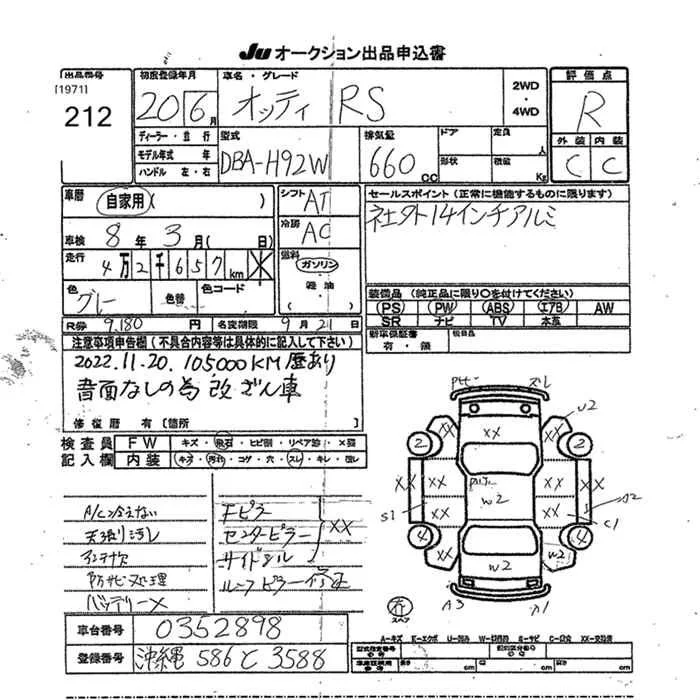 JU オークション出品申込書
出品番号
[1971]
212
初度登録年月
20 6月
車名・グレード
オッティ RS
2WD
・
4WD
評価点
R
外装 内装
C C
ディーラー・並行
モデル年式 年
ハンドル 左・右
型式
DBA-H92W
排気量
660 CC
ドア
定員 人
形状
積載 Kg
車暦
自家用 ( )
車検 8年 3月 ( 日)
走行 4万2千657km
色
グレー
色替
色コード
シフト AT
冷房 AC
燃料
ガソリン
軽油
セールスポイント (正常に機能するものに限ります)
社外14インチアルミ
装備品 (純正品に限り○を付けてください)
PS PW ABS エアB AW
SR ナビ TV 本革
新車保証書
有・無
R券 9.180 円 名変期限 9月21日
注意事項申告欄 (不具合内容等は具体的に記入して下さい)
2022.11.20. 105000KM歴あり
書面なしの為 改ざん車
修復歴 有 [箇所 ]
検査員 FW キズ・飛石・ヒビ割・リペア跡・×替
記入欄 内装 キズ・汚れ・コゲ・穴・スレ・キレ・
A/C冷えない
天張り汚レ
防サビ処理
バッテリー×
Fピラー
センターピラー XX
サイドシル
ルーフピラー修正
車台番号 0352898
登録番号 沖縄 586 と 3588
ズレ
U2
XX XX
2 2
W2
XX XX XX XX
S1
XX XX
C1
A2
4 4
XX
W2
W2
A3 A1
スペア
A-キズ E-エクボ U-凹み W-S-サビ C- XX-交換済
cm cm cm